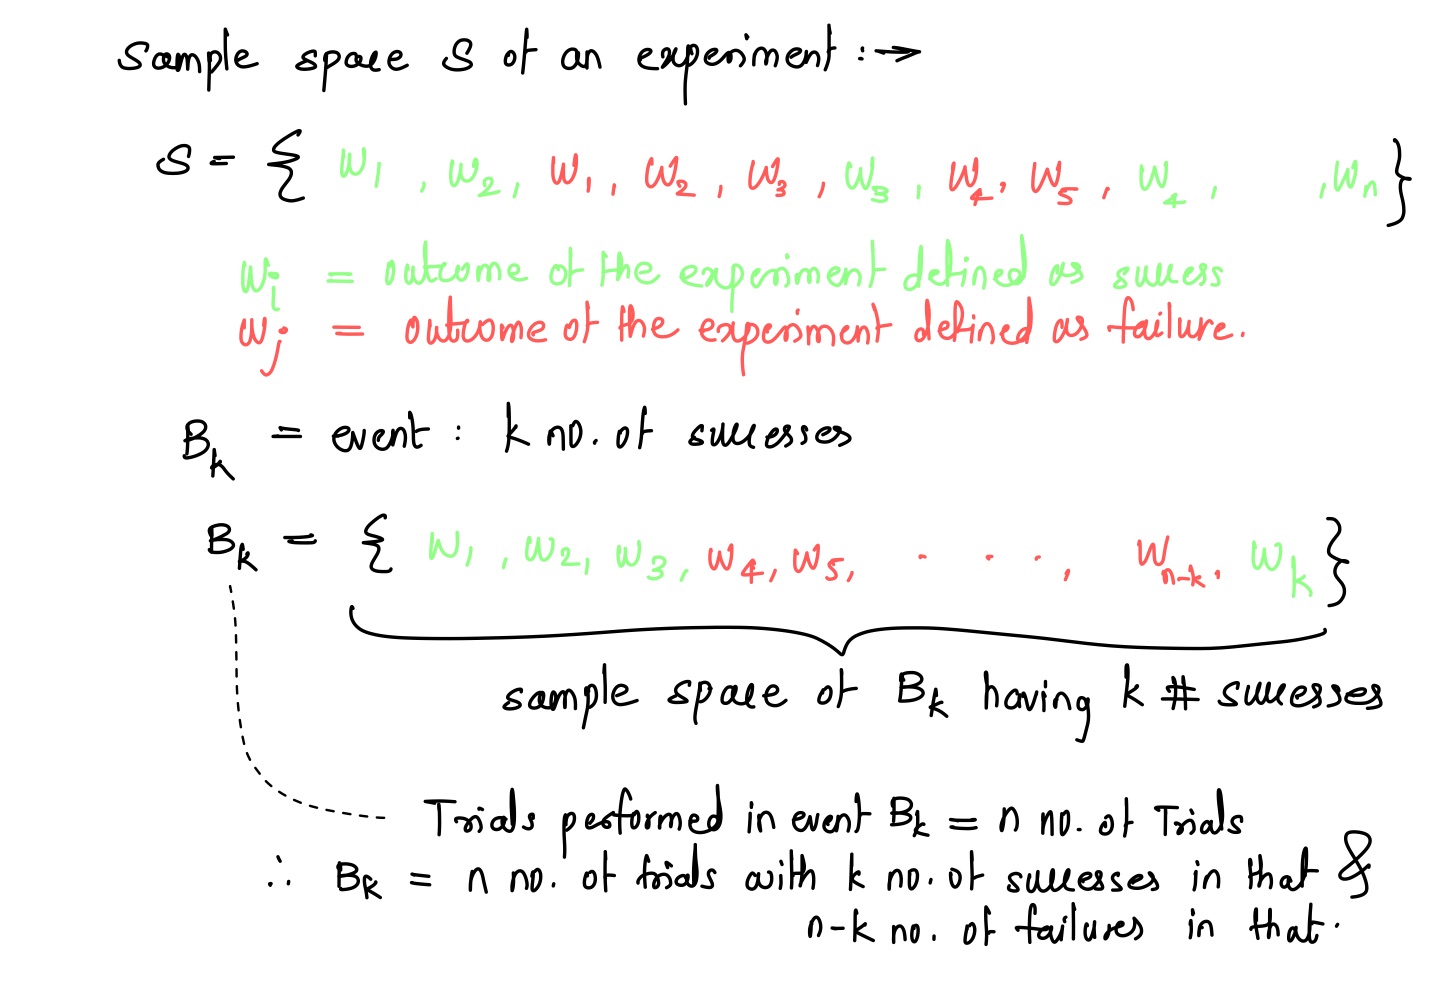 Sample space S of an experiment :→
S = { W1 , W2 , W1 , W2 , W3 , W3 , W4 , W5 , W4 , , Wn }
Wi = outcome of the experiment defined as success
Wj = outcome of the experiment defined as failure.
Bk = event : k no. of successes
Bk = { W1 , W2 , W3 , W4 , W5 , . . . , Wn-k , Wk }
sample space of Bk having k # successes
Trials performed in event Bk = n no. of Trials
∴ Bk = n no. of trials with k no. of successes in that &
n-k no. of failures in that.